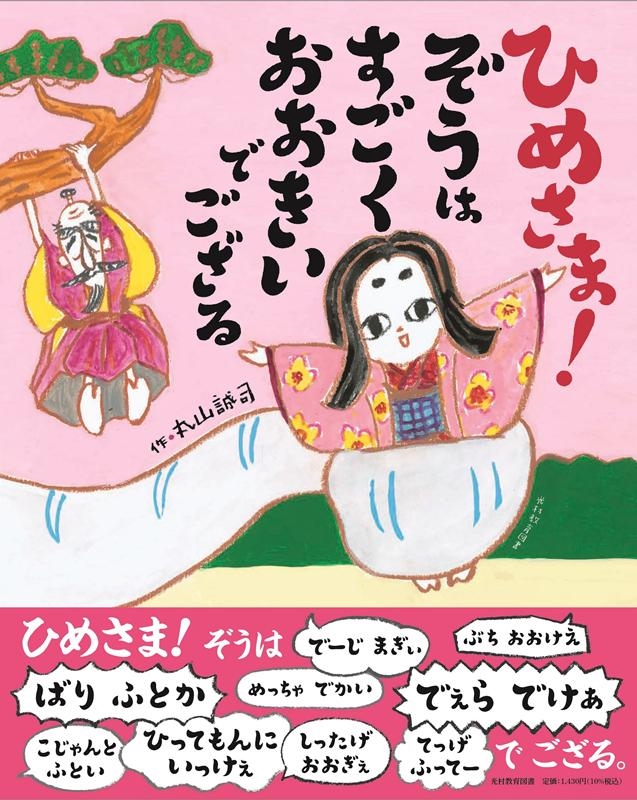 ひめさま！
ぞうは
すごく
おおきい
で
ござる
作・丸山誠司
光村教育図書
ひめさま！ ぞうは
でーじ まぎぃ
ぶち おおけえ
ばり ふとか
めっちゃ でかい
でぇら でけぁ
こじゃんと
ふとい
ひってもんに
いっけぇ
しったげ
おおぎぇ
てっげ
ふってー
で ござる。
光村教育図書 定価：1,430円（10%税込）